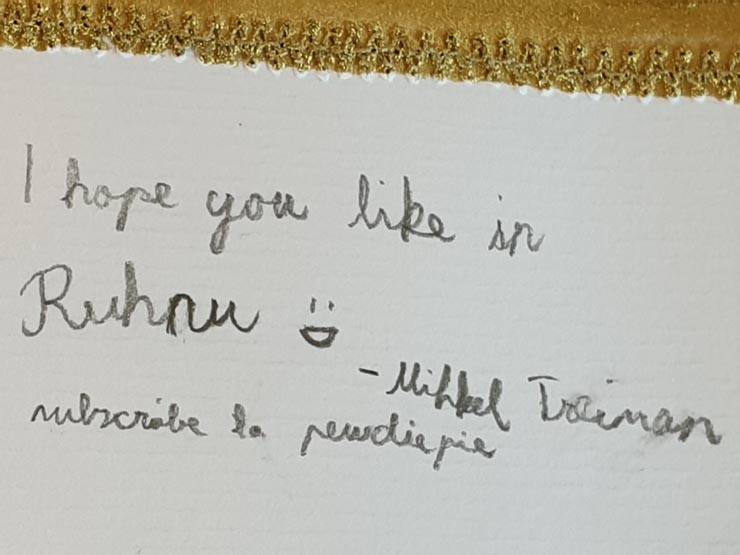 I hope you like in
Ruhnu
- Mihkel Treiman
subscribe to pewdiepie